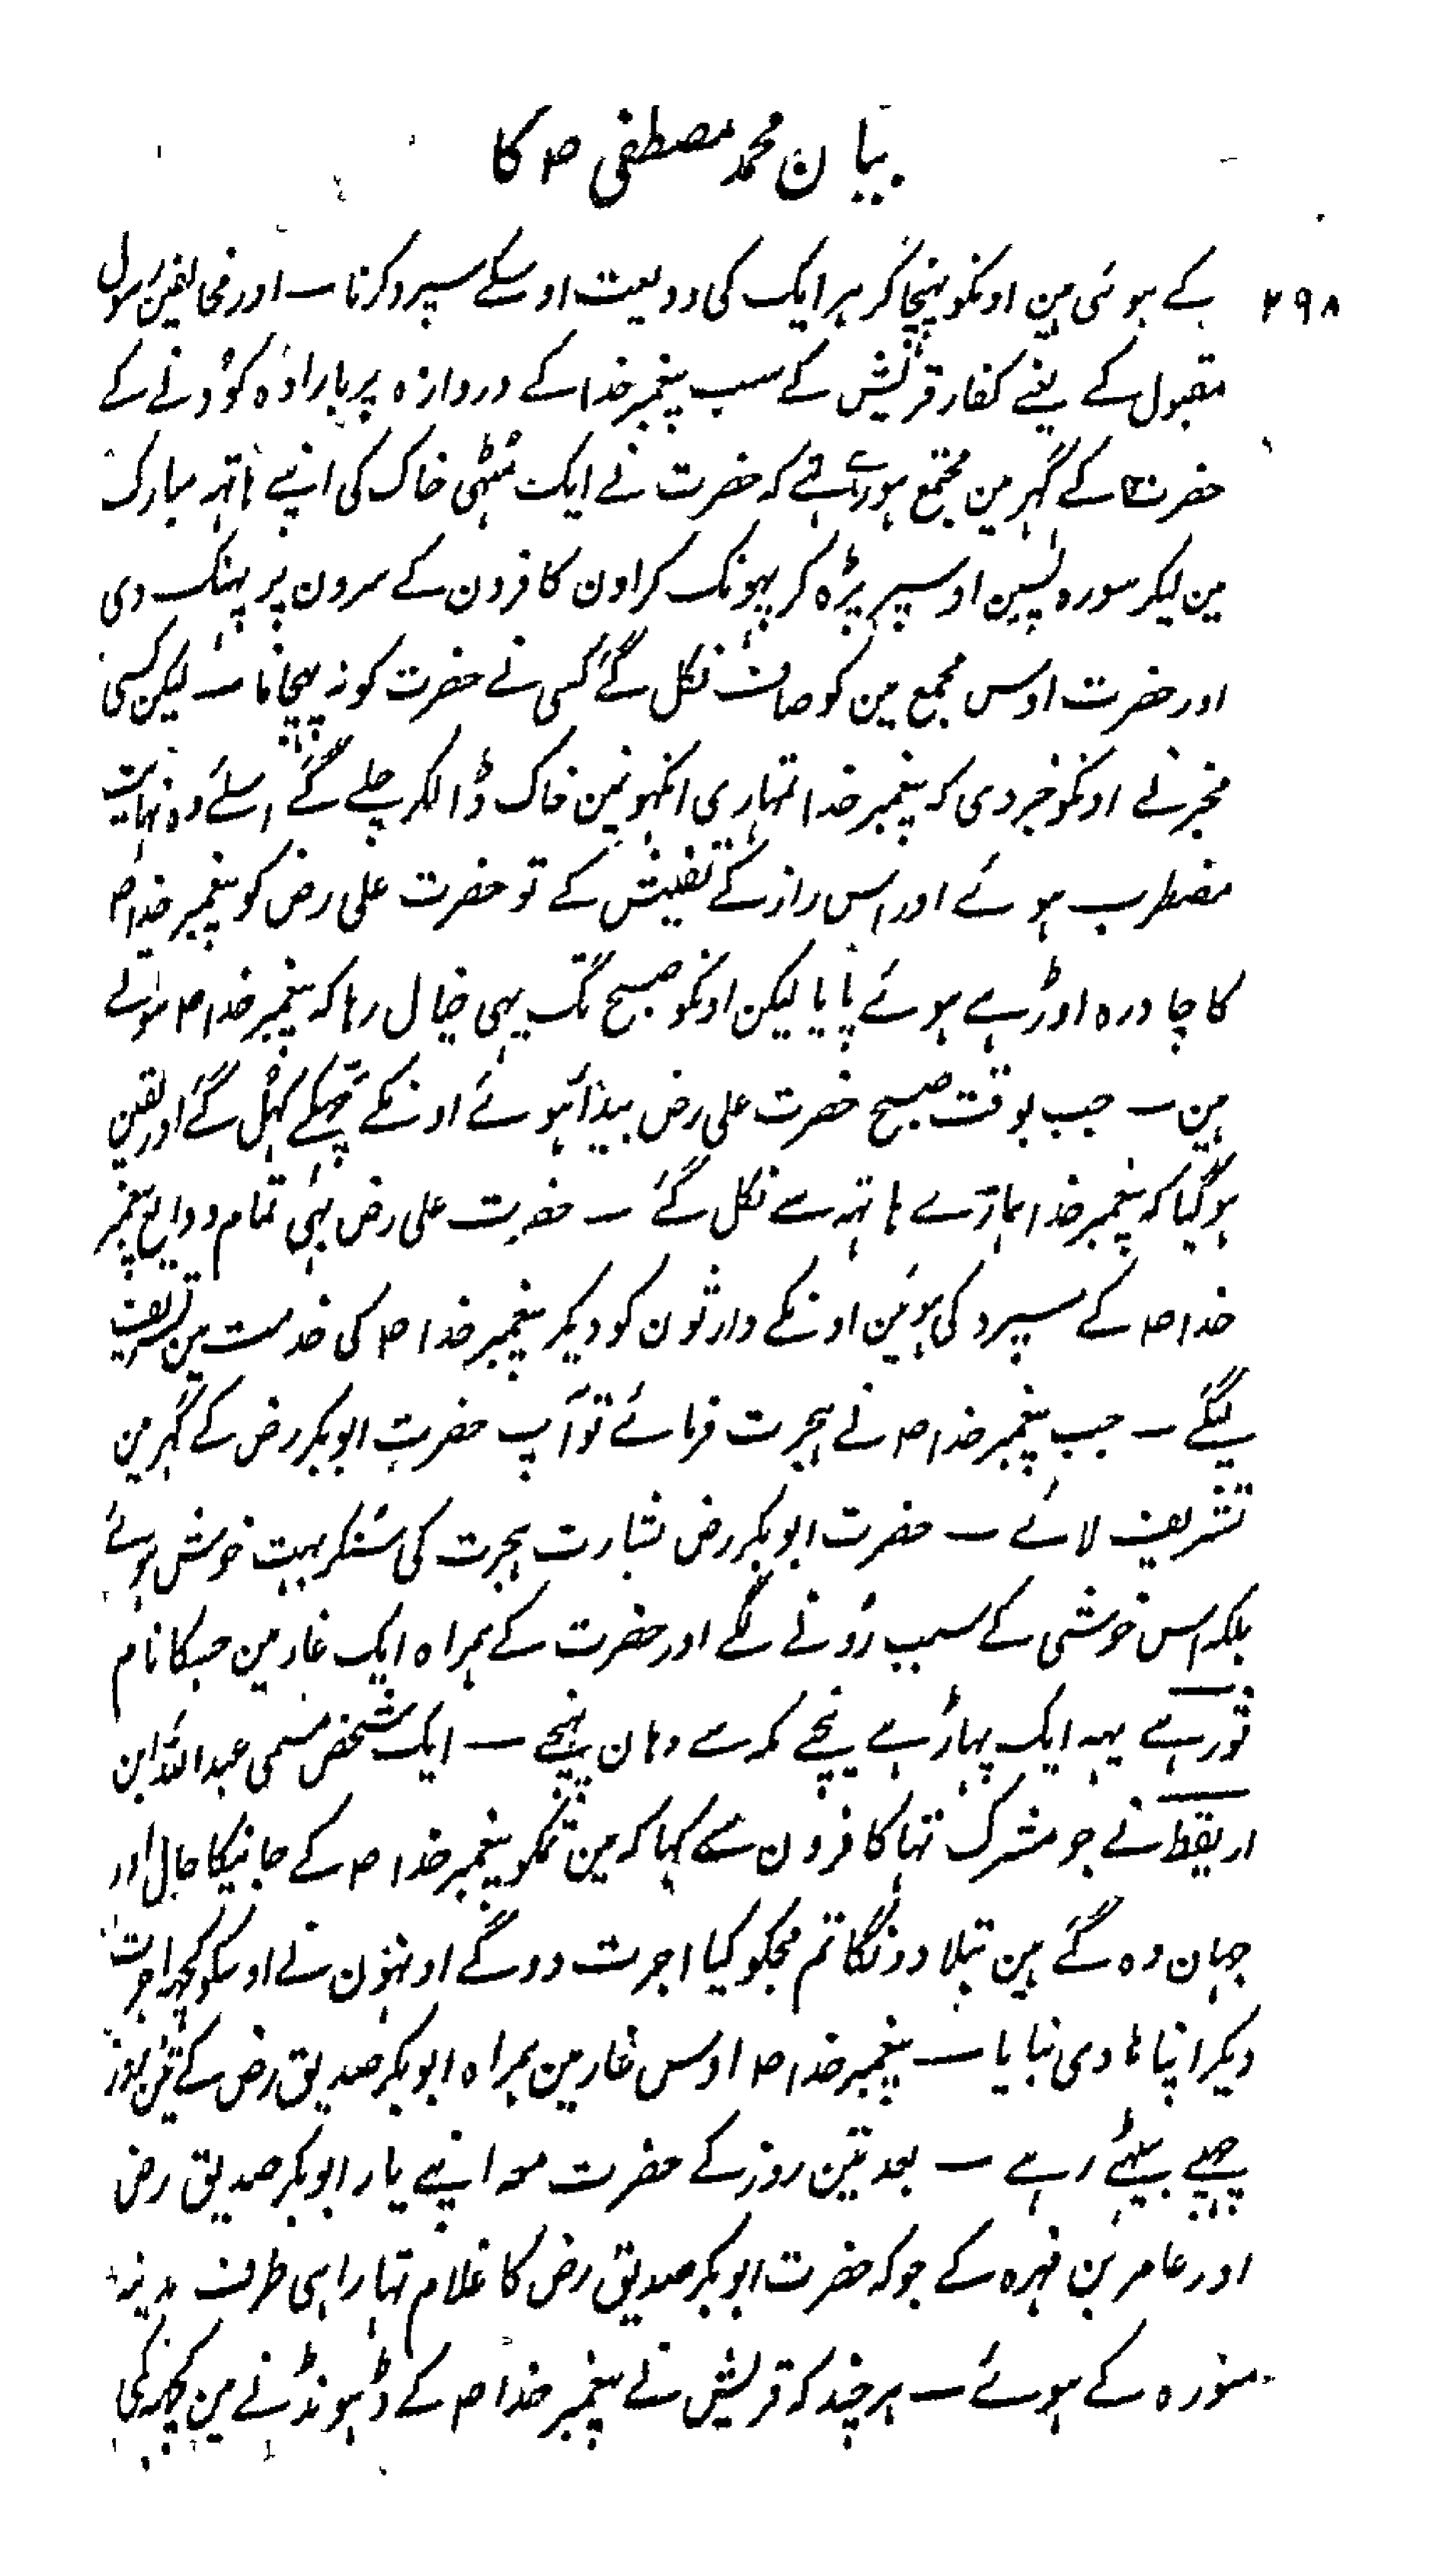 بیان محمد مصطفی ص کا
۲۹۸
کے ہوئی ہین اونکو پہنچا کر ہر ایک کی ودیعت اوسکے سپرد کرنا ۔ اور مخالفین رسول
مقبول کے یعنے کفار قریش کے سب پیغمبر خدا کے دروازہ پر بارادہ کودنے کے
حضرت کے گہر مین مجتمع ہو رہے تہے کہ حضرت نے ایک مٹہی خاک کی اپنے ہاتہہ مبارک
مین لیکر سورہ یٰسین اوسپر پڑہ کر پہونک کر اون کافرون کے سرون پر پہنک دی
اور حضرت اوس مجمع مین کو صاف نکل گئے کسی نے حضرت کو نہ پہچانا ۔ لیکن کسی
مخبر نے اونکو خبر دی کہ پیغمبر خدا تمہاری انکہونمین خاک ڈالکر چلے گئے اسلئے وہ نہایت
مضطرب ہوئے اور اس راز کے تفتیش کے تو حضرت علی رض کو پیغمبر خدا ص
کا چادرہ اوڑہے ہوئے پایا لیکن اونکو صبح تک یہی خیال رہا کہ پیغمبر خدا ص سوتے
ہین ۔ جب بوقت صبح حضرت علی رض بیدار ہوئے اونکے چہکے کہل گئے اور یقین
ہو گیا کہ پیغمبر خدا ہمارے ہاتہہ سے نکل گئے ۔ حضرت علی رض بہی تمام ودایع پیغمبر
خدا ص کے سپرد کی ہوئین اونکے وارثون کو دیکر پیغمبر خدا ص کی خدمت مین تشریف
لیگئے ۔ جب پیغمبر خدا ص نے ہجرت فرمائے تو آپ حضرت ابوبکر رض کے گہر مین
تشریف لائے ۔ حضرت ابوبکر رض بشارت ہجرت کی سنکر بہت خوش ہوئے
بلکہ اس خوشی کے سبب رونے لگے اور حضرت کے ہمراہ ایک غار مین جسکا نام
ثور ہے یہہ ایک پہاڑ ہے نیچے مکہ سے وہان پہنچے ۔ ایک شخص مسمی عبد اللہ ابن
اریقط نے جو مشرک تہا کافرون سے کہا کہ مین تمکو پیغمبر خدا ص کے جانیکا حال اور
جہان وہ گئے ہین بتلا دونگا تم مجکو کیا اجرت دوگے اونہون نے اوسکو کچہہ اجرت
دیکر اپنا ہادی بنایا ۔ پیغمبر خدا ص اوس غار مین ہمراہ ابوبکر صدیق رض کے تین روز
چہپے بیٹہے رہے ۔ بعد تین روز کے حضرت معہ اپنے یار ابوبکر صدیق رض
اور عامر بن فہرہ کے جو کہ حضرت ابوبکر صدیق رض کا غلام تہا راہی طرف مدینہ
منورہ کے ہوئے ۔ ہر چند کہ قریش نے پیغمبر خدا ص کے ڈہونڈنے مین کچہہ کمی